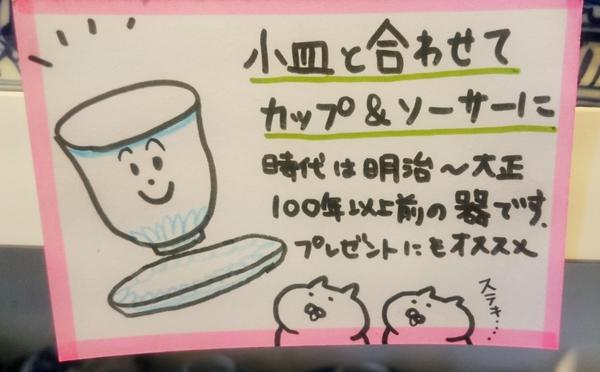 小皿と合わせて
カップ&ソーサーに
時代は明治～大正
100年以上前の器です.
プレゼントにもオススメ
ステキ…